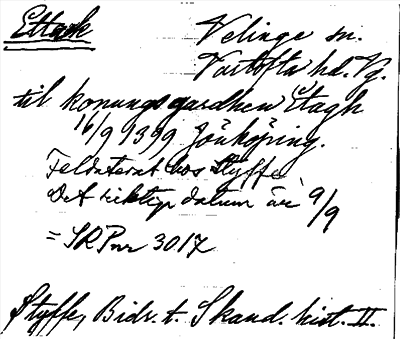 Ettak Velinge sn.
Vartofta hd. Vg.
til konungsgardhen Etagh
16/9 1399 Jönköping.
Feldaterat hos Styffe
Det riktiga datum är 9/9
= SRPnr 3017
Styffe, Bidr. t. Skand. hist. II.